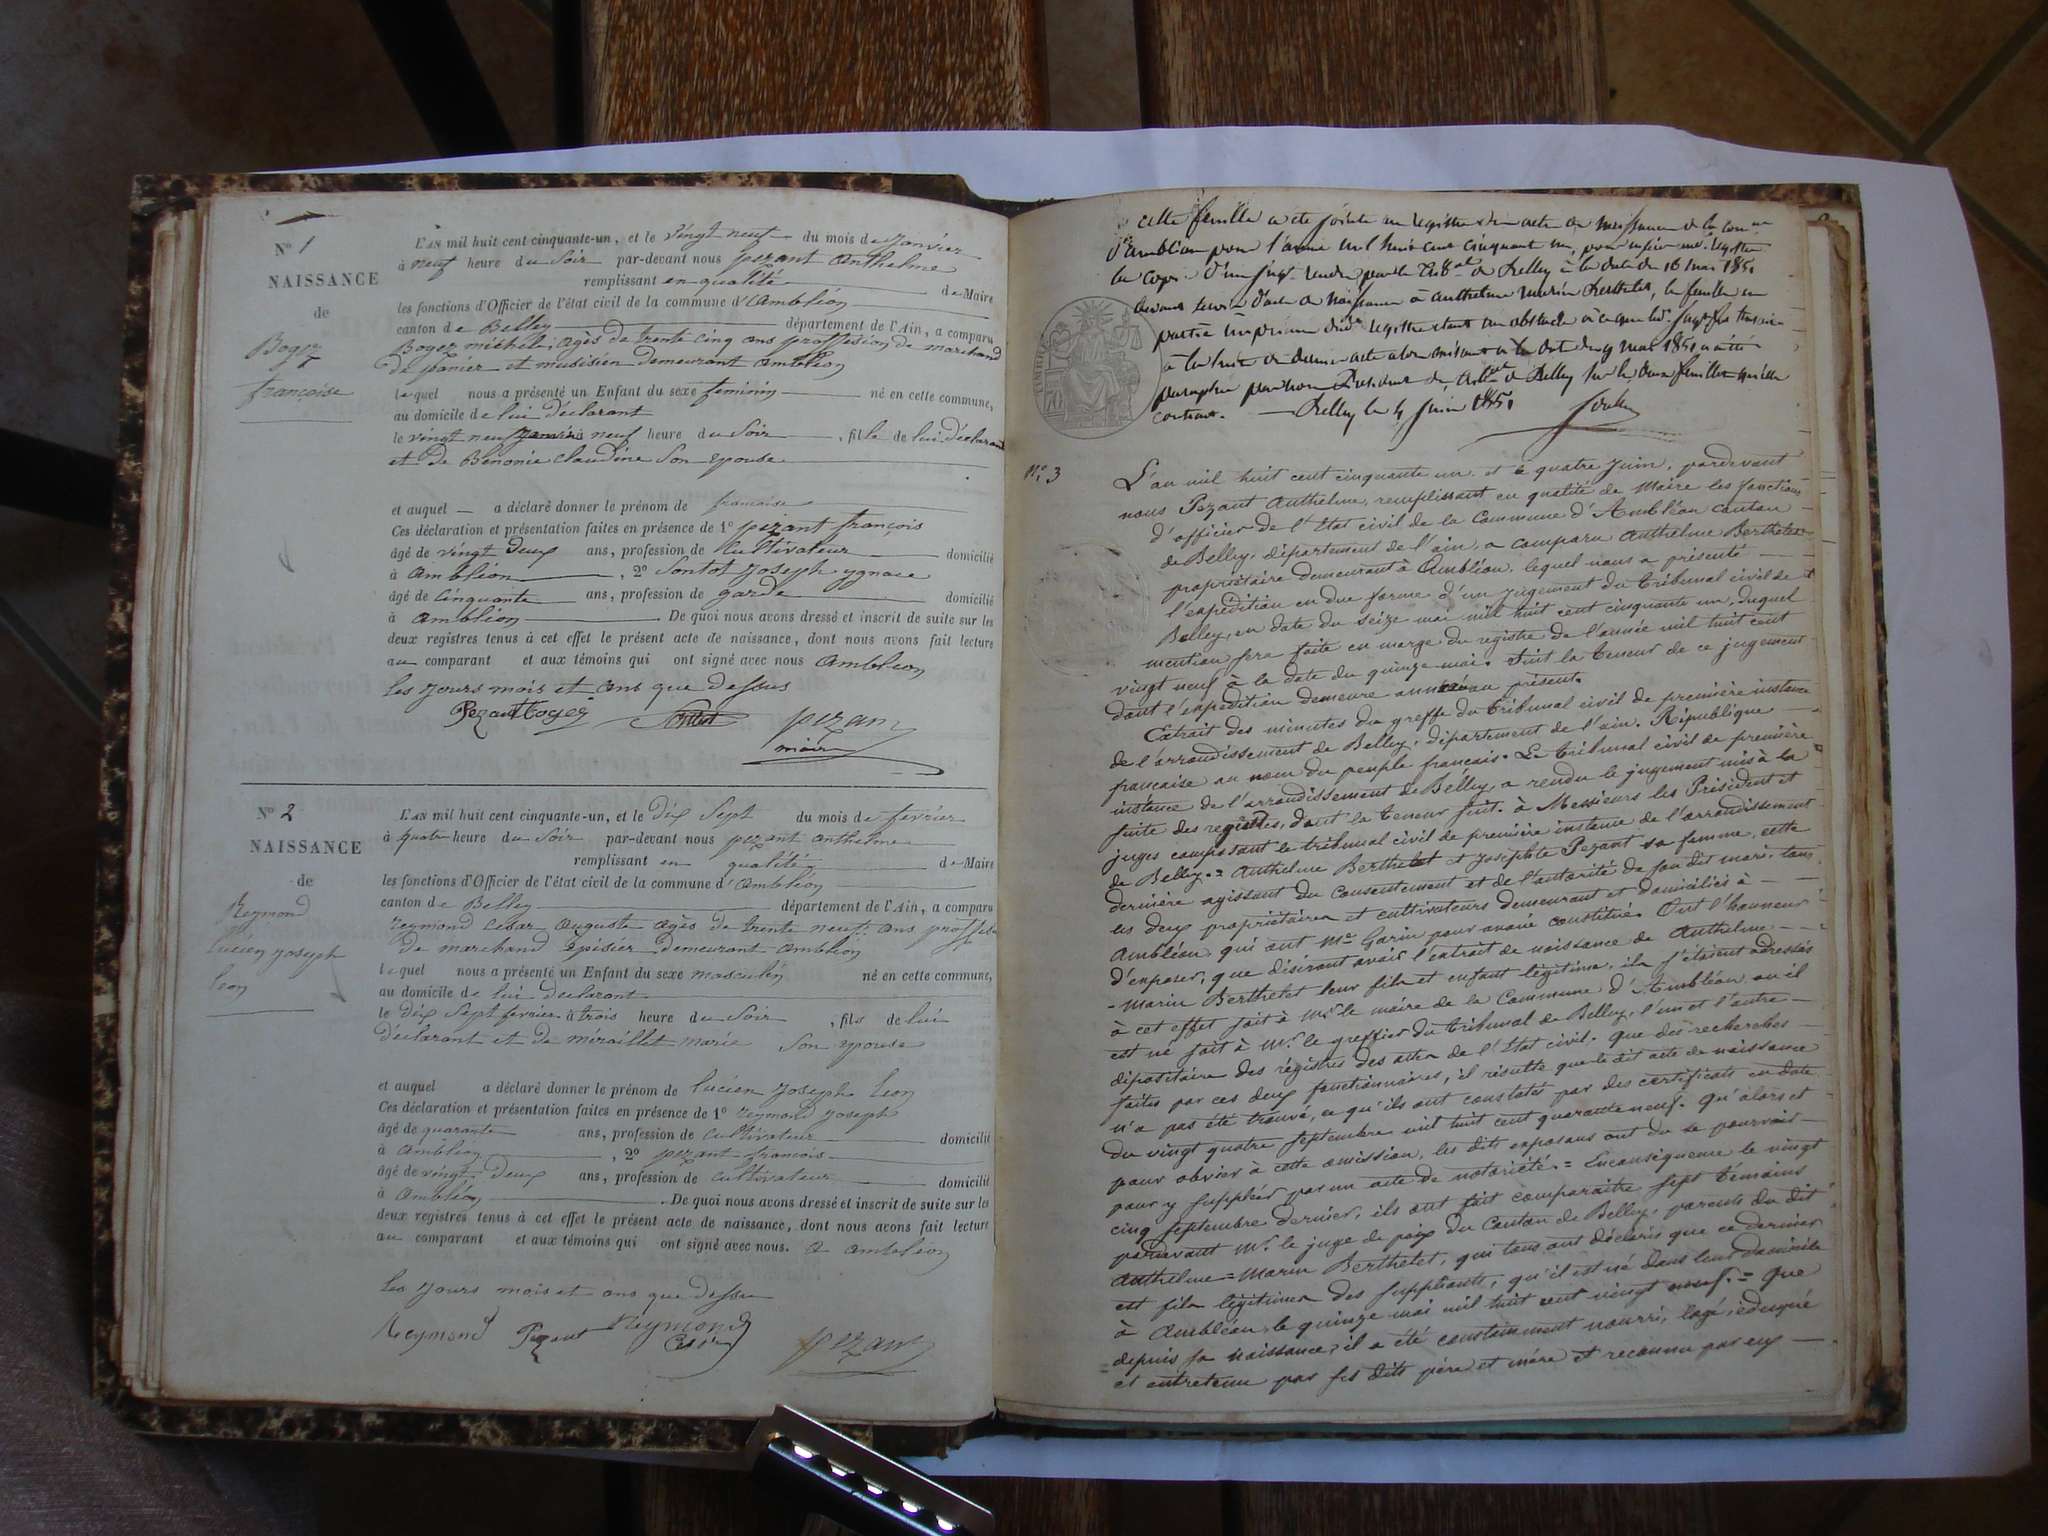 N° 1
NAISSANCE
de
Bogez
françoise
L'AN mil huit cent cinquante-un, et le vingt neuf du mois de Janvier
à neuf heure du Soir par-devant nous pezant anthelme
remplissant en qualité de Maire
les fonctions d'Officier de l'état civil de la commune d'Ambléon
canton de Belley département de l'Ain, a comparu
Bogez michel, agès de trente cinq ans proffesion de marchand
de panier et musisien demeurant Ambléon
lequel nous a présenté un Enfant du sexe feminin né en cette commune,
au domicile de lui déclarant
le vingt neuf Janvier neuf heure du Soir, fille de lui déclarant
et de Benonie claudine Son epouse
et auquel a déclaré donner le prénom de francoise
Ces déclaration et présentation faites en présence de 1° pezant françois
âgé de vingt deux ans, profession de cultivateur domicilié
à Ambléon, 2° Sontot Joseph ygnace
âgé de cinquante ans, profession de garde domicilié
à ambléon De quoi nous avons dressé et inscrit de suite sur les
deux registres tenus à cet effet le présent acte de naissance, dont nous avons fait lecture
au comparant et aux témoins qui ont signé avec nous Ambléon
les yours mois et ans que dessus
Pezant Bogez pezant
maire
N° 2
NAISSANCE
de
Reymond
lucien yoseph
leon
L'AN mil huit cent cinquante-un, et le dix Sept du mois de fevrier
à quatre heure du Soir par-devant nous pezant anthelme
remplissant en qualité de Maire
les fonctions d'Officier de l'état civil de la commune d'Ambléon
canton de Belley département de l'Ain, a comparu
reymond cesar auguste agès de trente neuf ans proffesi
de marchand épisier demeurant ambléon
lequel nous a présenté un Enfant du sexe masculin né en cette commune,
au domicile de lui declarant
le dix Sept fevrier à trois heure du Soir, fils de lui
déclarant et de méraillet marie Son epouse
et auquel a déclaré donner le prénom de lucien yoseph leon
Ces déclaration et présentation faites en présence de 1° reymond yoseph
âgé de quarante ans, profession de cultivateur domicilié
à ambléon, 2° pezant francois
âgé de vingt deux ans, profession de cultivateur domicilié
à Ambléon De quoi nous avons dressé et inscrit de suite sur les
deux registres tenus à cet effet le présent acte de naissance, dont nous avons fait lecture
au comparant et aux témoins qui ont signé avec nous. a ambléon
les yours mois et ans que dessu
Reymond Pezant Reymond pezant
Cesar
cette feuille a été jointe au registre des actes de naissance de la comne
d'ambléon pour l'année mil huit cent cinquante un, pour
la copie d'un jugt rendu par le tribal de Belley à la date du 16 mai 1851
devant servir d'acte de naissance à anthelme marin Berthelet, la feuille en
partie imprimée dudit registre étant un obstacle à ce que led. jugt
à la suite du dernier acte à la date du 9 mai 1851 a été
paraphée par nous Président du tribal de Belley sur les deux feuillets
contient. Belley le 4 Juin 1851
TIMBRE
N° 3
L'an mil huit cent cinquante un et le quatre Juin, pardevant
nous Pezant Anthelme, remplissant en qualité de Maire les fonctions
d'officier de l'Etat civil de la Commune d'Ambléon canton
de Belley, département de l'ain, a comparu Anthelme Berthelet
propriétaire demeurant à Ambléon, lequel nous a présenté
l'expédition en due forme d'un jugement du tribunal civil de
Belley, en date du seize mai mil huit cent cinquante un, duquel
mention sera faite en marge du registre de l'année mil huit cent
vingt neuf à la date du quinze mai. Suit la teneur de ce jugement
dont l'expédition demeure annexée au présent.
Extrait des minutes du greffe du tribunal civil de première instance
de l'arrondissement de Belley, département de l'ain. République
française au nom du peuple français. Le tribunal civil de première
instance de l'arrondissement de Belley, a rendu le jugement mis à la
suite des registres, dont la teneur suit. à Messieurs les Président et
juges composant le tribunal civil de première instance de l'arrondissement
de Belley. = Anthelme Berthelet et Josephte Pezant sa femme, cette
dernière agissant du consentement et de l'autorité de son dit mari, tous
les deux propriétaires et cultivateurs demeurant et domiciliés à
Ambléon, qui ont Me Garin pour avoué constitué. Ont l'honneur
d'exposer, que désirant avoir l'extrait de naissance de Anthelme
- Marin Berthelet leur fils et enfant légitime, ils s'étaient adressés
à cet effet soit à Mr le maire de la Commune d'Ambléon, où il
est né soit à Mr le greffier du tribunal de Belley, l'un et l'autre
dépositaire des régistres des actes de l'Etat civil. Que des recherches
faites par ces deux fonctionnaires, il résulte que le dit acte de naissance
n'a pas été trouvé, ce qu'ils ont constatés par des certificats en date
du vingt quatre septembre mil huit cent quarante neuf. Qu'alors et
pour obvier à cette omission, les dits exposans ont du se pourvoir
pour y suppléer par un acte de notoriété. = Enconséquence le vingt
cinq septembre dernier, ils ont fait comparaître sept témoins
pardevant Mr le juge de paix du Canton de Belley, parents du dit
Anthelme = Marin Berthelet, qui tous ont déclarés que ce dernier
est fils légitime des suppliants, qu'il est né dans leur domicile
à Ambléon, le quinze mai mil huit cent vingt neuf. = Que
depuis sa naissance, il a été constamment nourri, logé, éduqué
et entretenu par ses dits père et mère et reconnu par eux